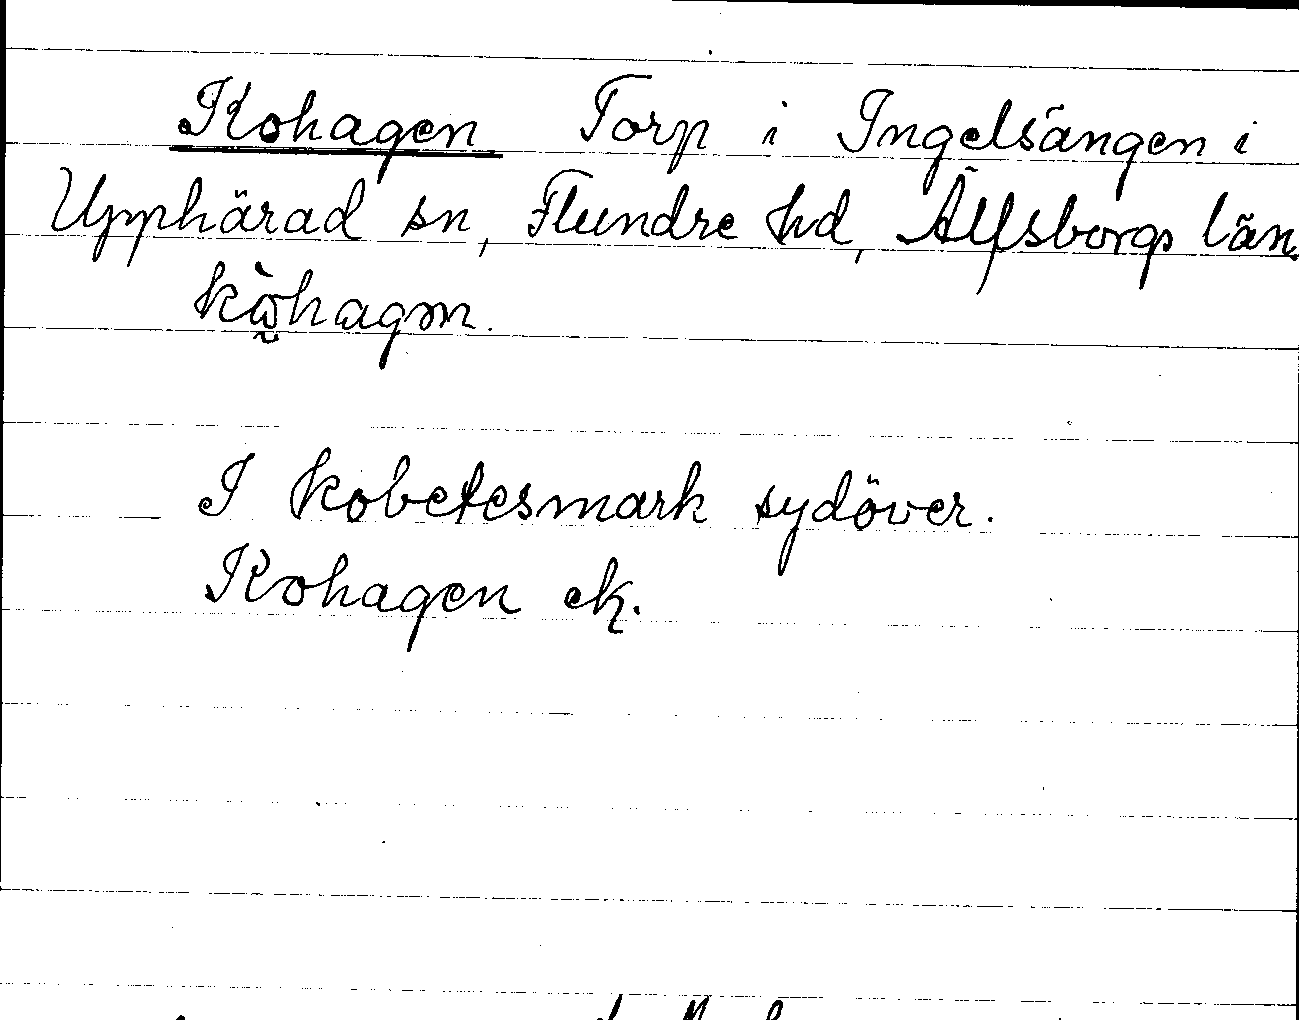 Kohagen Torp i Ingelsängen i
Upphärad sn, Flundre hd, Älfsborgs län.
kὼ̰hagɔn.
I kobetesmark sydöver.
Kohagen ek.